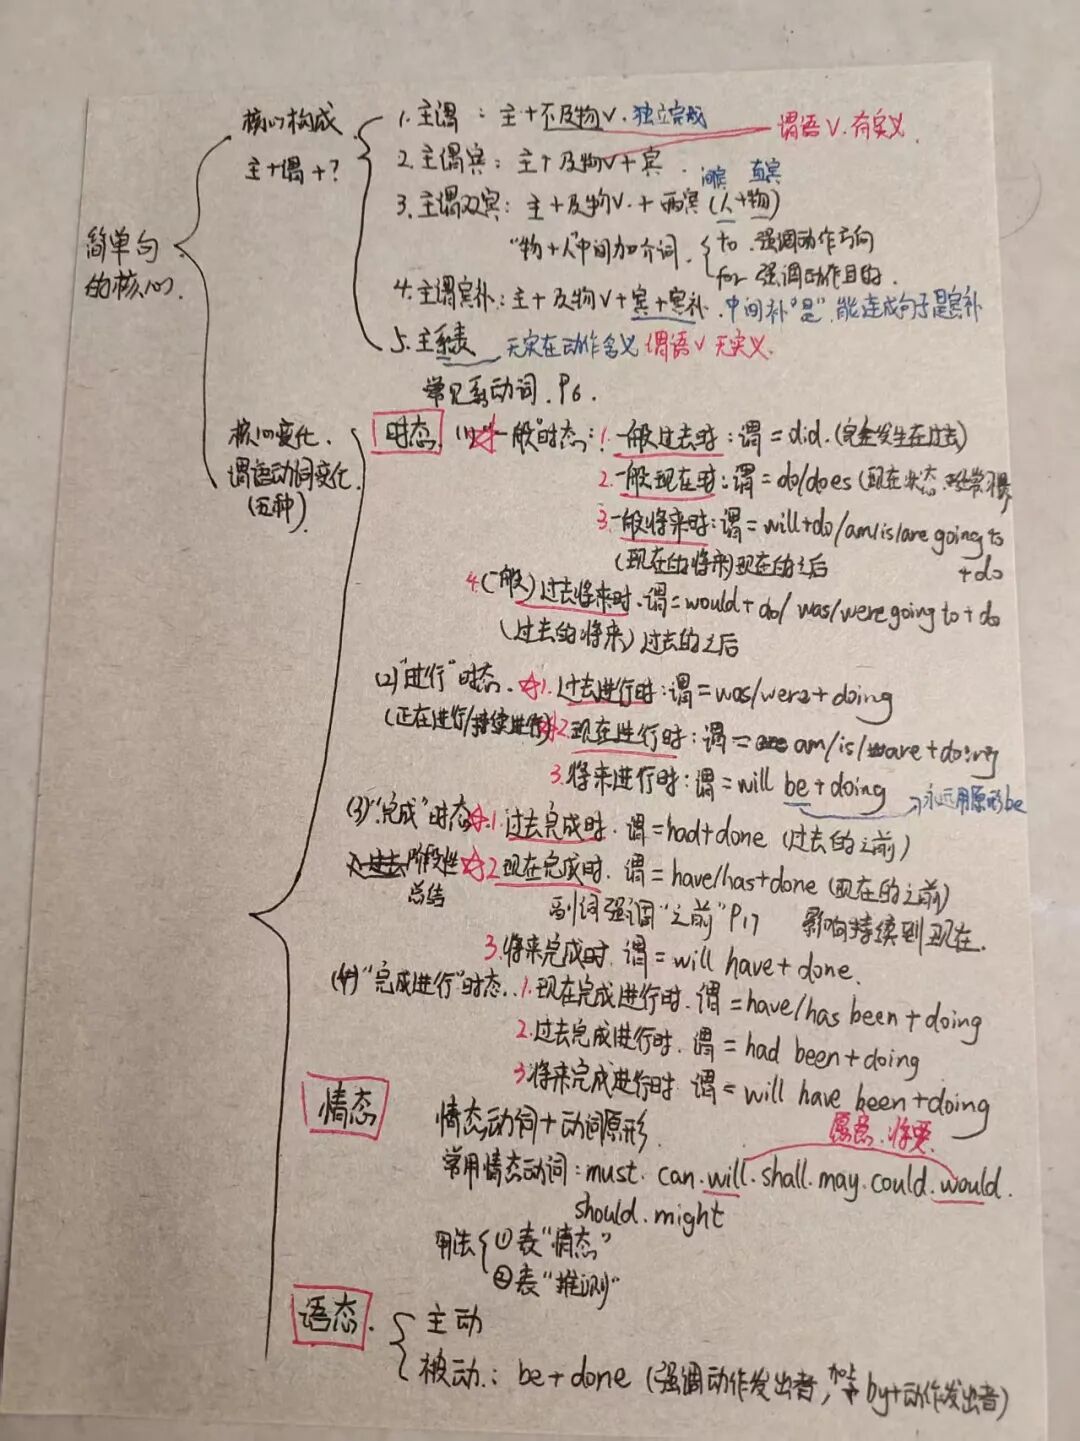 简单句的核心.
核心构成
主+谓+?
1.主谓：主+不及物v.独立完成
谓语V.有实义.
2.主谓宾：主+及物v+宾.
间宾 直宾
3.主谓双宾：主+及物v.+两宾(人+物)
"物+人"中间加介词.
to.强调动作方向
for 强调动作目的.
4.主谓宾补：主+及物v+宾+宾补.中间补"是",能连成句子是宾补
5.主系表 无实在动作含义 谓语v无实义.
常见系动词.P6.
核心变化.
谓语动词变化.
(五种)
时态. (1)"一般"时态：1.一般过去时：谓=did.(完全发生在过去)
2.一般现在时：谓=do/does(现在状态.经常习惯)
3.一般将来时：谓=will+do/am/is/are going to
+do
(现在的将来)现在的之后
4.(一般)过去将来时.谓=would+do/ was/were going to+do
(过去的将来)过去的之后
(2)"进行"时态. 1.过去进行时：谓=was/were+doing
(正在进行/持续进行) 2.现在进行时：谓= am/is/are+doing
3.将来进行时：谓=will be+doing
→永远用原形be
(3)"完成"时态 1.过去完成时.谓=had+done (过去的之前)
阶段性总结 2.现在完成时.谓=have/has+done (现在的之前)
副词强调"之前"P17 影响持续到现在.
3.将来完成时.谓=will have+done.
(4)"完成进行"时态..1.现在完成进行时.谓=have/has been+doing
2.过去完成进行时.谓=had been+doing
3.将来完成进行时 谓=will have been+doing
情态 情态动词+动词原形.
愿意.将要.
常用情态动词：must.can.will.shall.may.could.would.
should.might
用法 ①表"情态"
②表"推测"
语态. 主动
被动.：be+done (强调动作发出者,加上by+动作发出者)